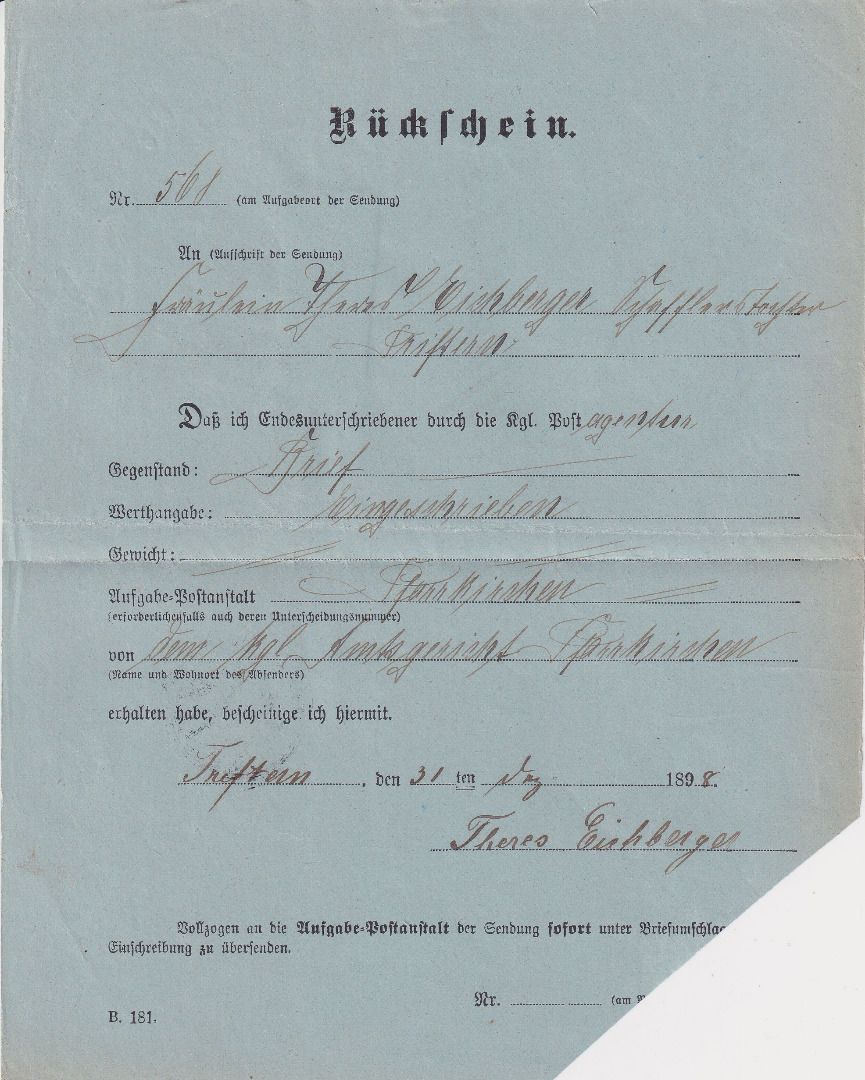 Rückschein.
Nr. 568 (am Aufgabeort der Sendung)
An (Aufschrift der Sendung)
Fräulein Theres Eichberger Schäfflerstochter
Triftern
Daß ich Endesunterschriebener durch die Kgl. Postagentur
Gegenstand: Brief
Werthangabe: Eingeschrieben
Gewicht:
Aufgabe-Postanstalt Pfarrkirchen
(erforderlichenfalls auch deren Unterscheidungsnummer)
von dem kgl. Amtsgericht Pfarrkirchen
(Name und Wohnort des Absenders)
erhalten habe, bescheinige ich hiermit.
Triftern, den 31 ten Dez 1898.
Theres Eichberger
Vollzogen an die Aufgabe-Postanstalt der Sendung sofort unter Briefumschlag
Einschreibung zu übersenden.
Nr. (am
B. 181.